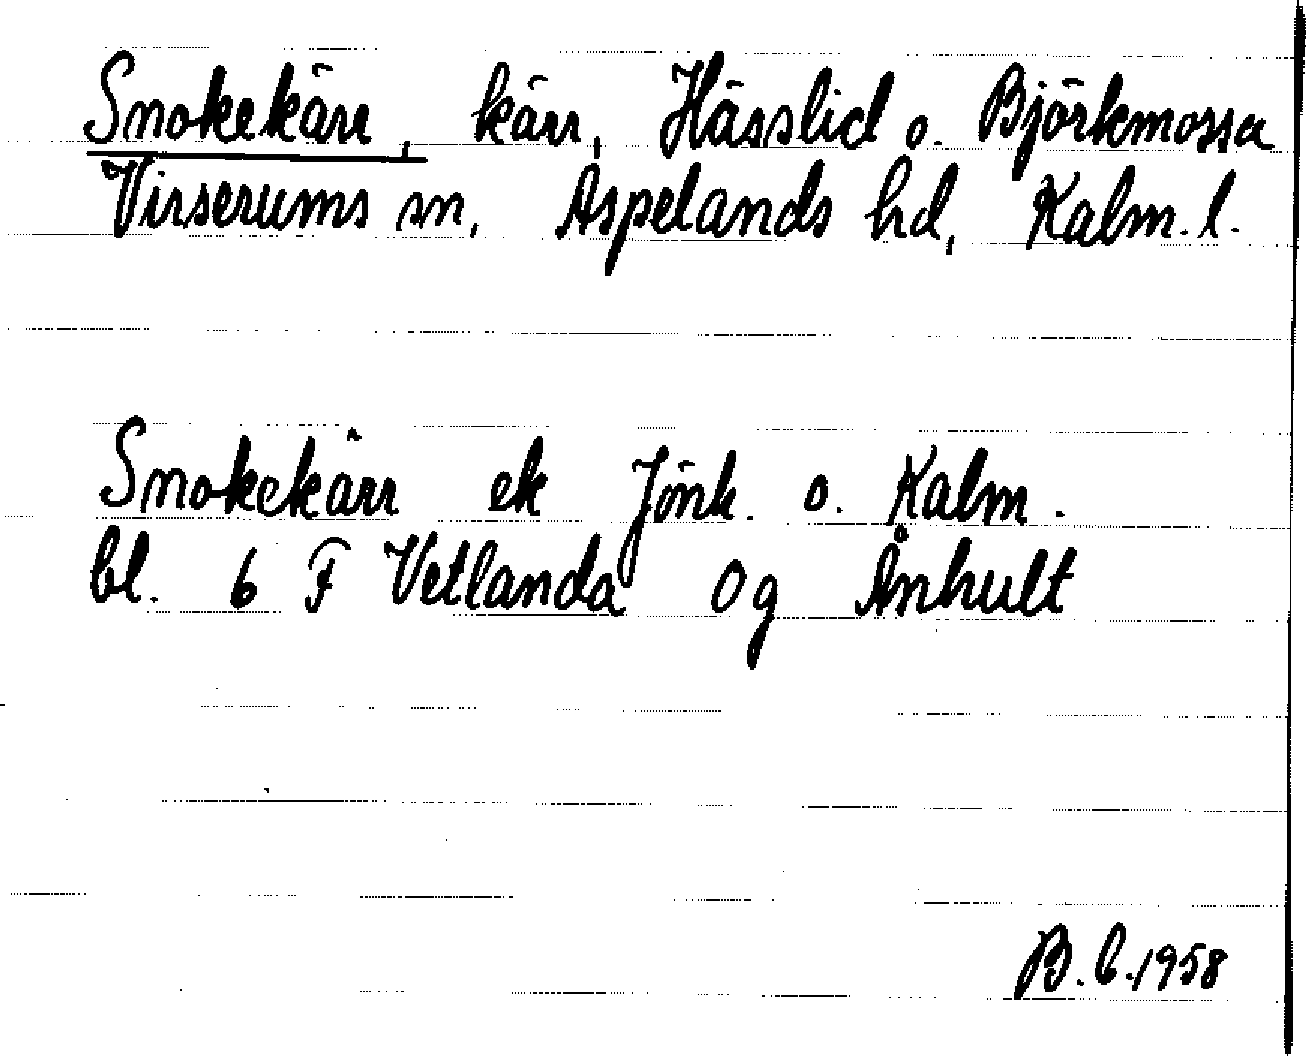 Snokekärr, kärr, Hässlid o. Björkmossa
Virserums sn, Aspelands hd, Kalm. l.
Snokekärr ek Jönk. o. Kalm.
bl. 6 F Vetlanda 0g Ånhult
B. b. 1958